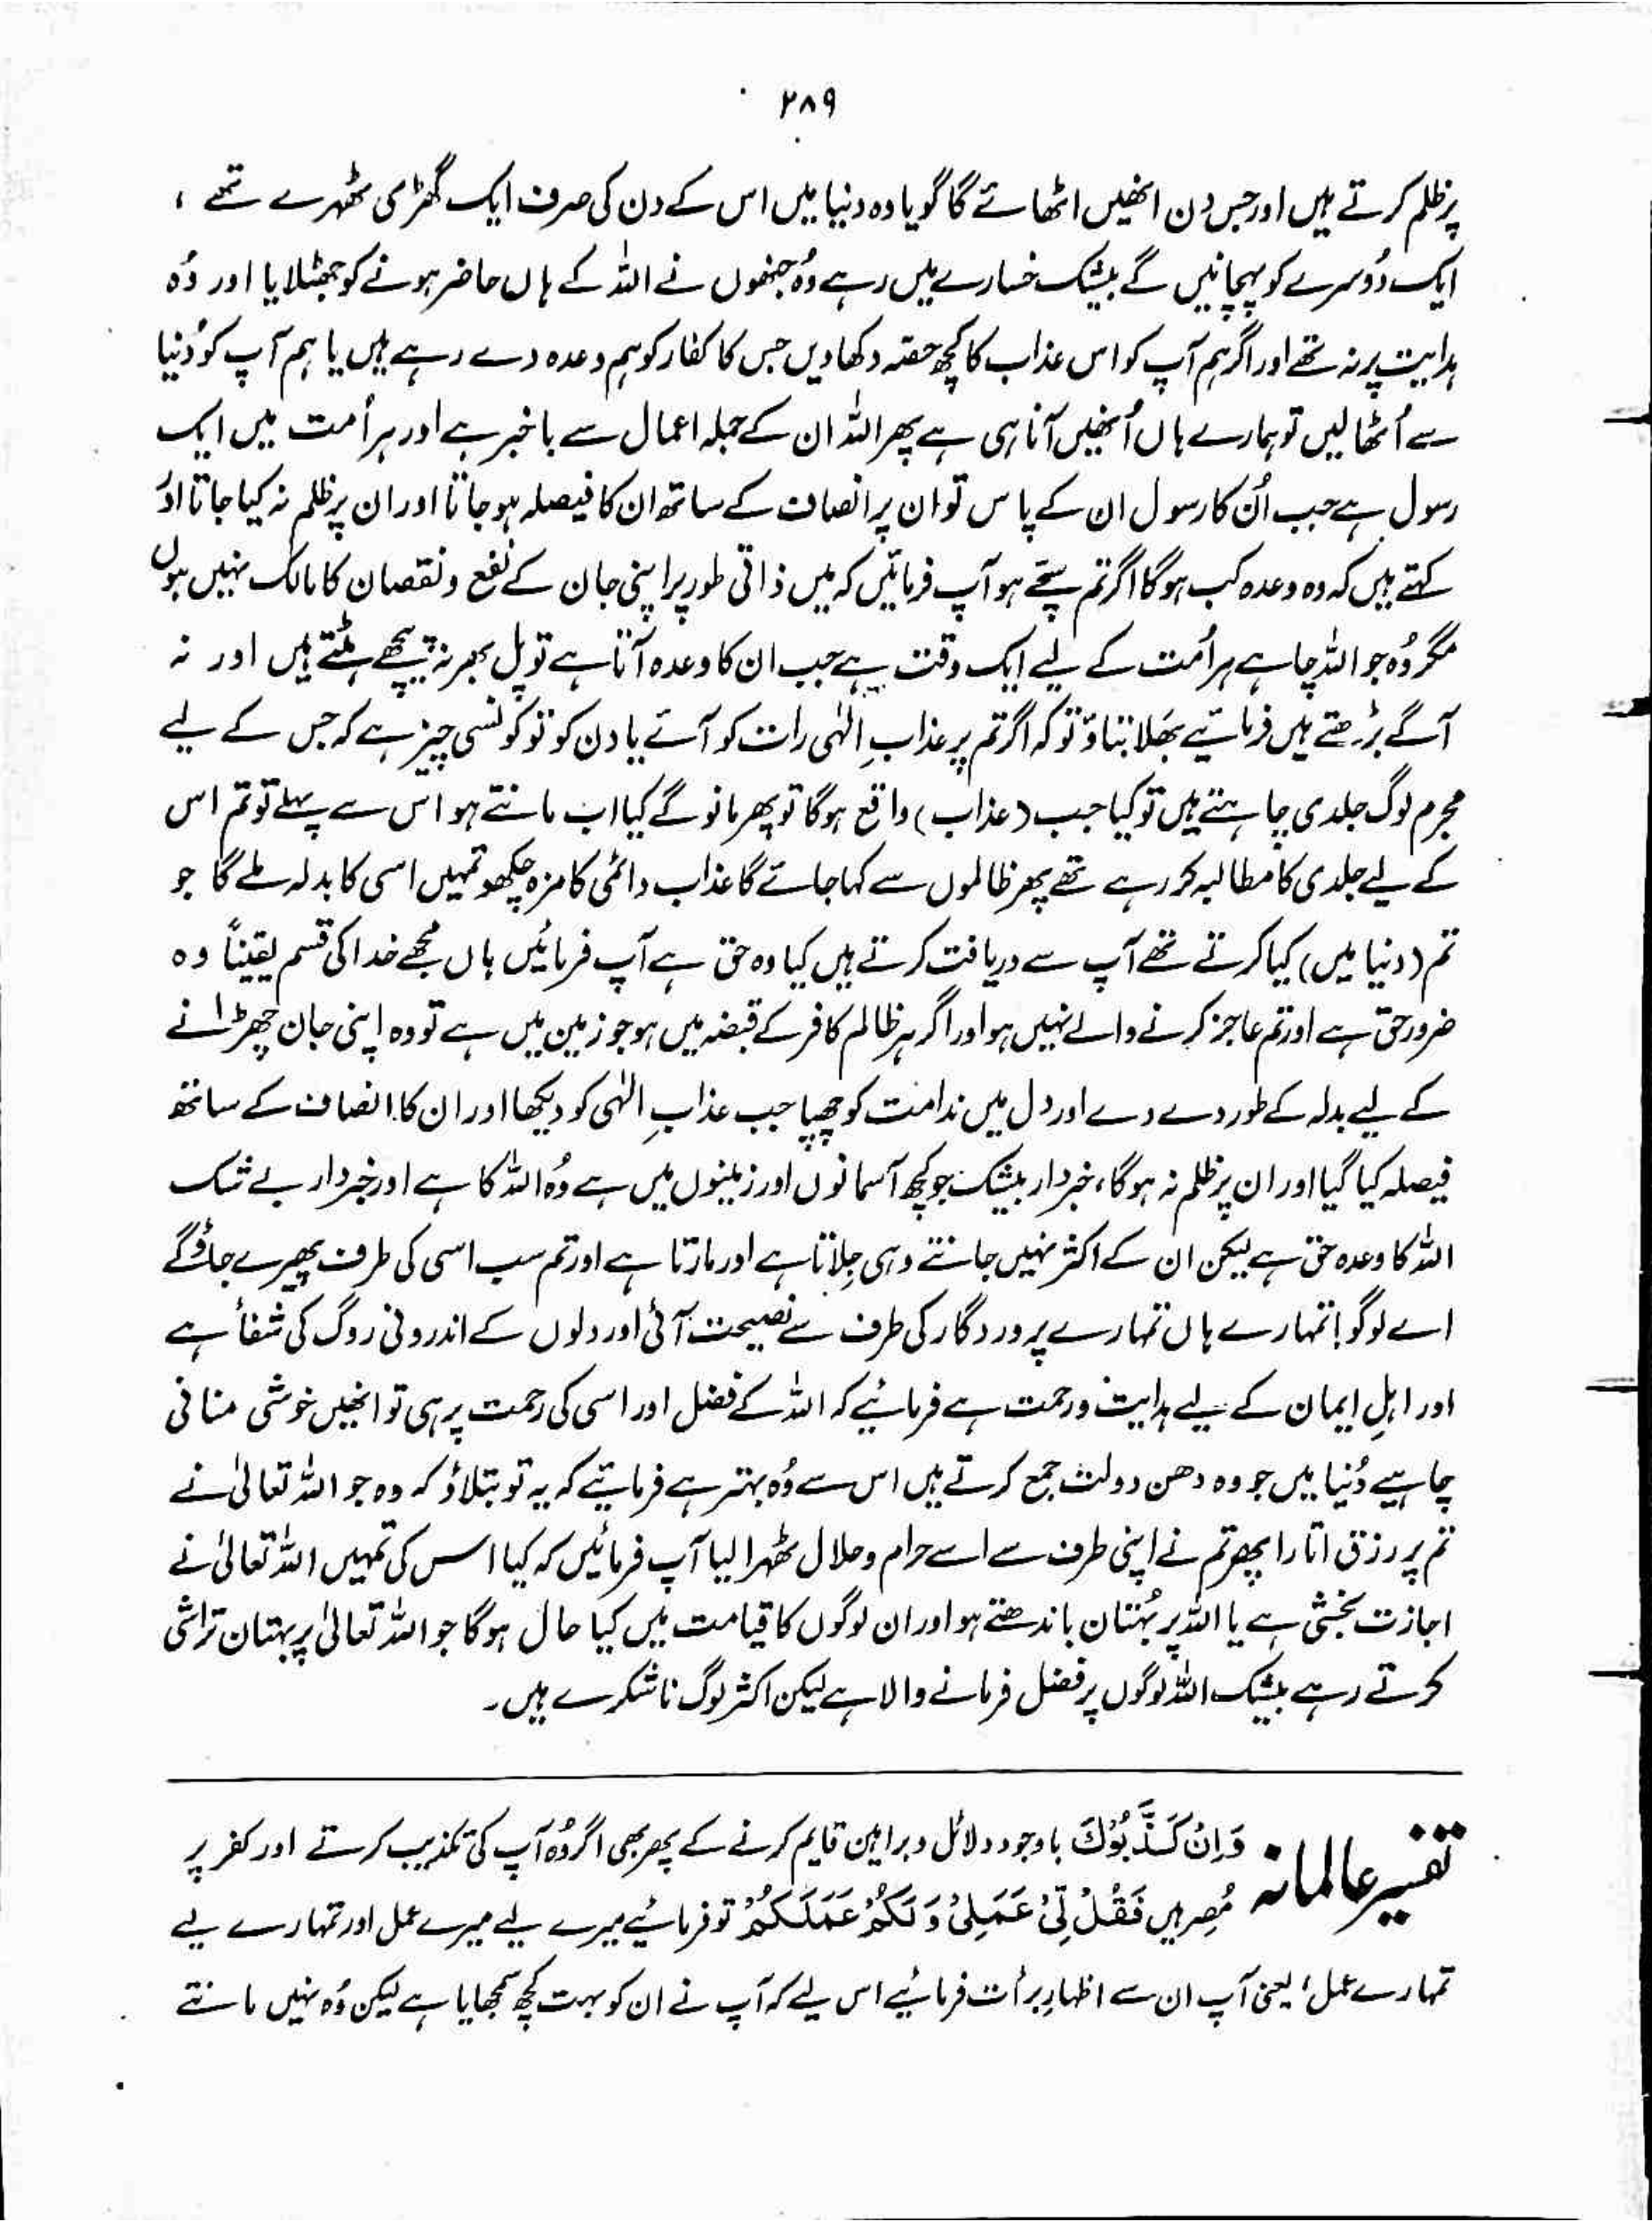 ۲۸۹
پر ظلم کرتے ہیں اور جس دن انھیں اٹھائے گا گویا وہ دنیا میں اس کے دن کی صرف ایک گھڑی ٹھہرے تھے ،
ایک دُوسرے کو پہچانیں گے بیشک خسارے میں رہے وُہ جنھوں نے اللہ کے ہاں حاضر ہونے کو جھٹلایا اور وُہ
ہدایت پر نہ تھے اور اگر ہم آپ کو اس عذاب کا کچھ حصہ دکھا دیں جس کا کفار کو ہم وعدہ دے رہے ہیں یا ہم آپ کو دُنیا
سے اُٹھا لیں تو ہمارے ہاں اُنھیں آنا ہی ہے پھر اللہ ان کے جملہ اعمال سے باخبر ہے اور ہر اُمت میں ایک
رسول ہے جب اُن کا رسول ان کے پاس تو ان پر انصاف کے ساتھ ان کا فیصلہ ہو جاتا اور ان پر ظلم نہ کیا جاتا اوُر
کہتے ہیں کہ وہ وعدہ کب ہوگا اگر تم سچے ہو آپ فرمائیں کہ میں ذاتی طور پر اپنی جان کے نفع و نقصان کا مالک نہیں ہوں
مگر وُہ جو اللہ چاہے ہر اُمت کے لیے ایک وقت ہے جب ان کا وعدہ آتا ہے تو پل بھر نہ پیچھے ہٹتے ہیں اور نہ
آگے بڑھتے ہیں فرمائیے بھَلا بتاؤ تو کہ اگر تم پر عذابِ الٰہی رات کو آئے یا دن کو تو کونسی چیز ہے کہ جس کے لیے
مجرم لوگ جلدی چاہتے ہیں تو کیا جب (عذاب) واقع ہوگا تو پھر مانو گے کیا اب مانتے ہو اس سے پہلے تو تم اس
کے لیے جلدی کا مطالبہ کر رہے تھے پھر ظالموں سے کہا جائے گا عذاب دائمی کا مزہ چکھو تمہیں اسی کا بدلہ ملے گا جو
تم (دنیا میں) کیا کرتے تھے آپ سے دریافت کرتے ہیں کیا وہ حق ہے آپ فرمائیں ہاں مجھے خدا کی قسم یقیناً وہ
ضرور حق ہے اور تم عاجز کرنے والے نہیں ہو اور اگر ہر ظالم کافر کے قبضہ میں ہو جو زمین میں ہے تو وہ اپنی جان چھڑانے
کے لیے بدلہ کے طور دے دے اور دل میں ندامت کو چھپا جب عذابِ الٰہی کو دیکھا اور ان کا انصاف کے ساتھ
فیصلہ کیا گیا اور ان پر ظلم نہ ہوگا، خبردار بیشک جو کچھ آسمانوں اور زمینوں میں ہے وُہ اللہ کا ہے اور خبردار بے شک
اللہ کا وعدہ حق ہے لیکن ان کے اکثر نہیں جانتے وہی جِلاتا ہے اور مارتا ہے اور تم سب اسی کی طرف پھیرے جاؤ گے
اے لوگو! تمہارے ہاں تمہارے پروردگار کی طرف سے نصیحت آئی اور دلوں کے اندرونی روگ کی شفأ ہے
اور اہلِ ایمان کے لیے ہدایت و رحمت ہے فرمائیے کہ اللہ کے فضل اور اسی کی رحمت پر ہی تو انھیں خوشی منانی
چاہیے دُنیا میں جو وہ دھن دولت جمع کرتے ہیں اس سے وُہ بہتر ہے فرمائیے کہ یہ تو بتلاؤ کہ وہ جو اللہ تعالیٰ نے
تم پر رزق اتارا پھر تم نے اپنی طرف سے اسے حرام و حلال ٹھہرا لیا آپ فرمائیں کہ کیا اس کی تمہیں اللہ تعالیٰ نے
اجازت بخشی ہے یا اللہ پر بُہتان باندھتے ہو اور ان لوگوں کا قیامت میں کیا حال ہوگا جو اللہ تعالیٰ پر بہتان تراشی
کرتے رہے بیشک اللہ لوگوں پر فضل فرمانے والا ہے لیکن اکثر لوگ ناشکرے ہیں۔
تفسیر عالمانہ وَاِنْ كَذَّبُوْكَ باوجود دلائل و براہین قایم کرنے کے پھر بھی اگر وُہ آپ کی تکذیب کرتے اور کفر پر
مُصِر ہیں فَقُلْ لِّیْ عَمَلِیْ وَ لَكُمْ عَمَلَكُمْ تو فرمائیے میرے لیے میرے عمل اور تمہارے لیے
تمہارے عمل؛ یعنی آپ ان سے اظہارِ برأت فرمائیے اس لیے کہ آپ نے ان کو بہت کچھ سمجھایا ہے لیکن وُہ نہیں مانتے